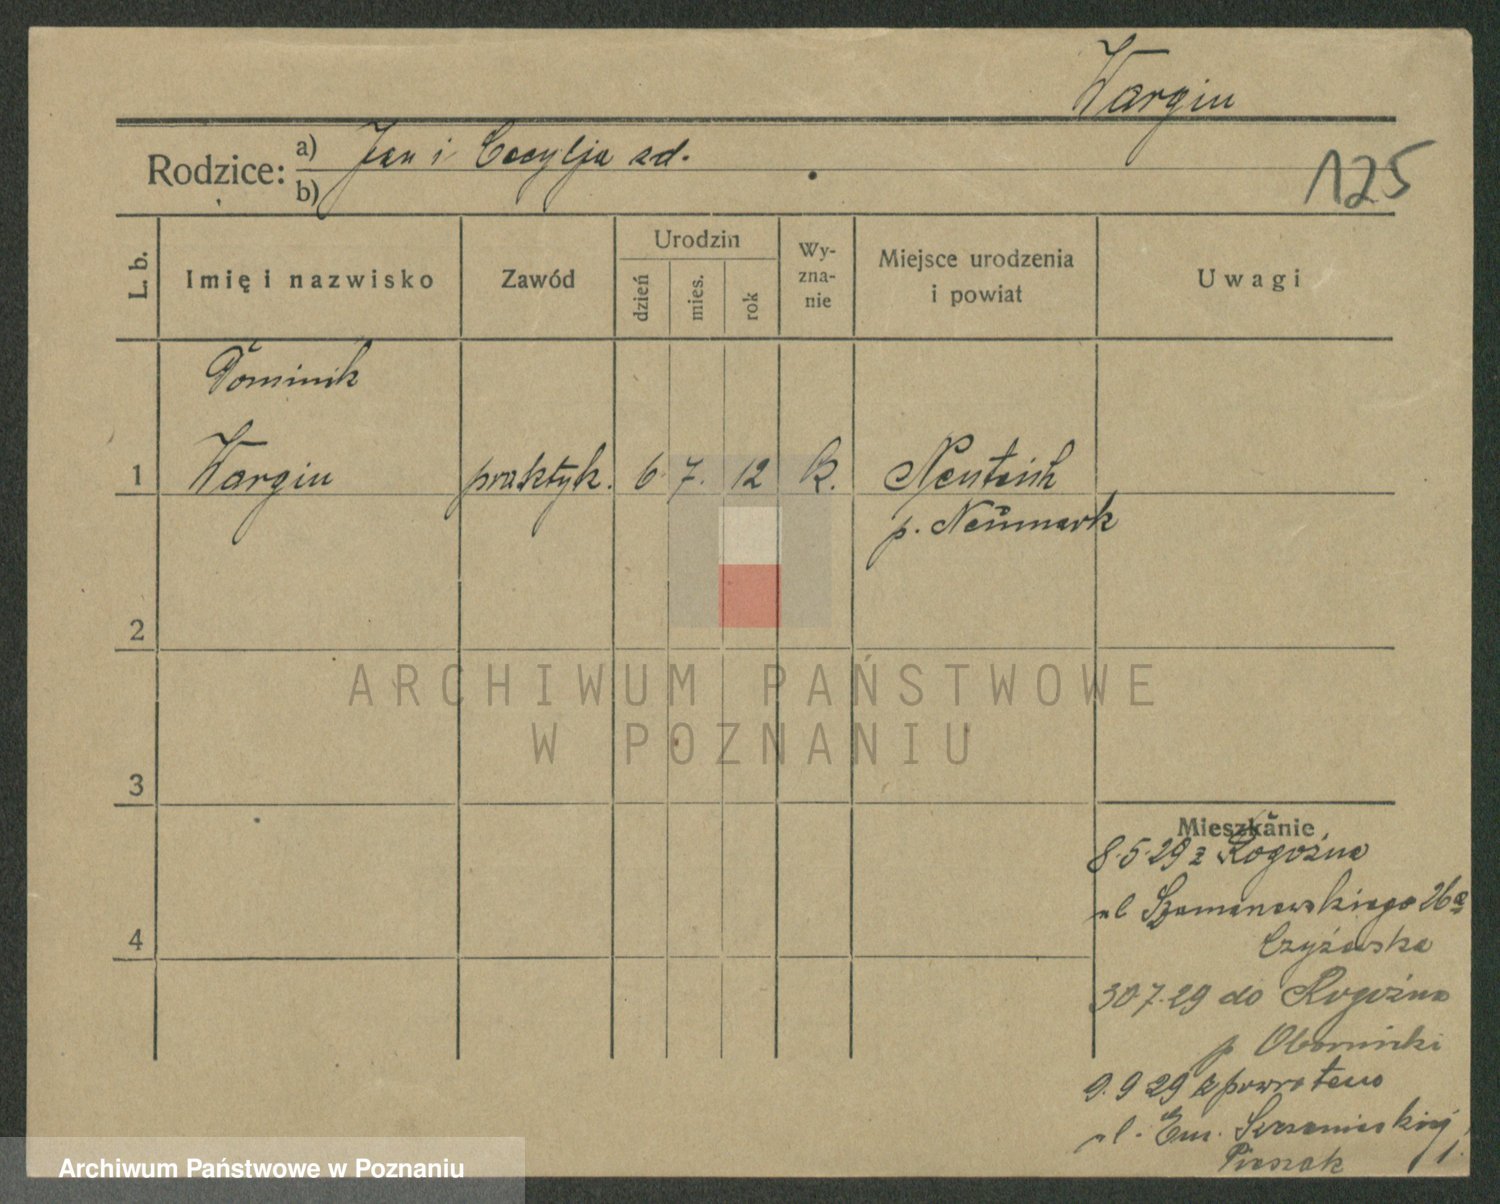 Wargin
Rodzice: a) Jan i Cecylja zd.
b)
125
L. b.
Imię i nazwisko
Zawód
Urodzin
dzień
mies.
rok
Wy-
zna-
nie
Miejsce urodzenia
i powiat
Uwagi
Dominik
1 Wargin praktyk. 6. 7. 12 k. Neuteich
p. Neumark
2
ARCHIWUM PAŃSTWOWE
W POZNANIU
3
Mieszkanie
8.5.29 z Rogoźna
ul Szamarzewskiego 26a
4
Czyżewska
30 7.29 do Rogoźna
p Obornicki
9. 9 29 z powrotem
ul. Em. 1.
Archiwum Państwowe w Poznaniu